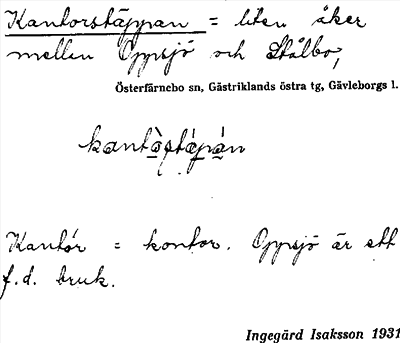 Kantorstäppan = liten åker
mellan Oppsjö och Stålbo,
Österfärnebo sn, Gästriklands östra tg, Gävleborgs l.
kantòstápán
Kantór = kontor. Oppsjö är ett
f.d. bruk.
Ingegärd Isaksson 1931